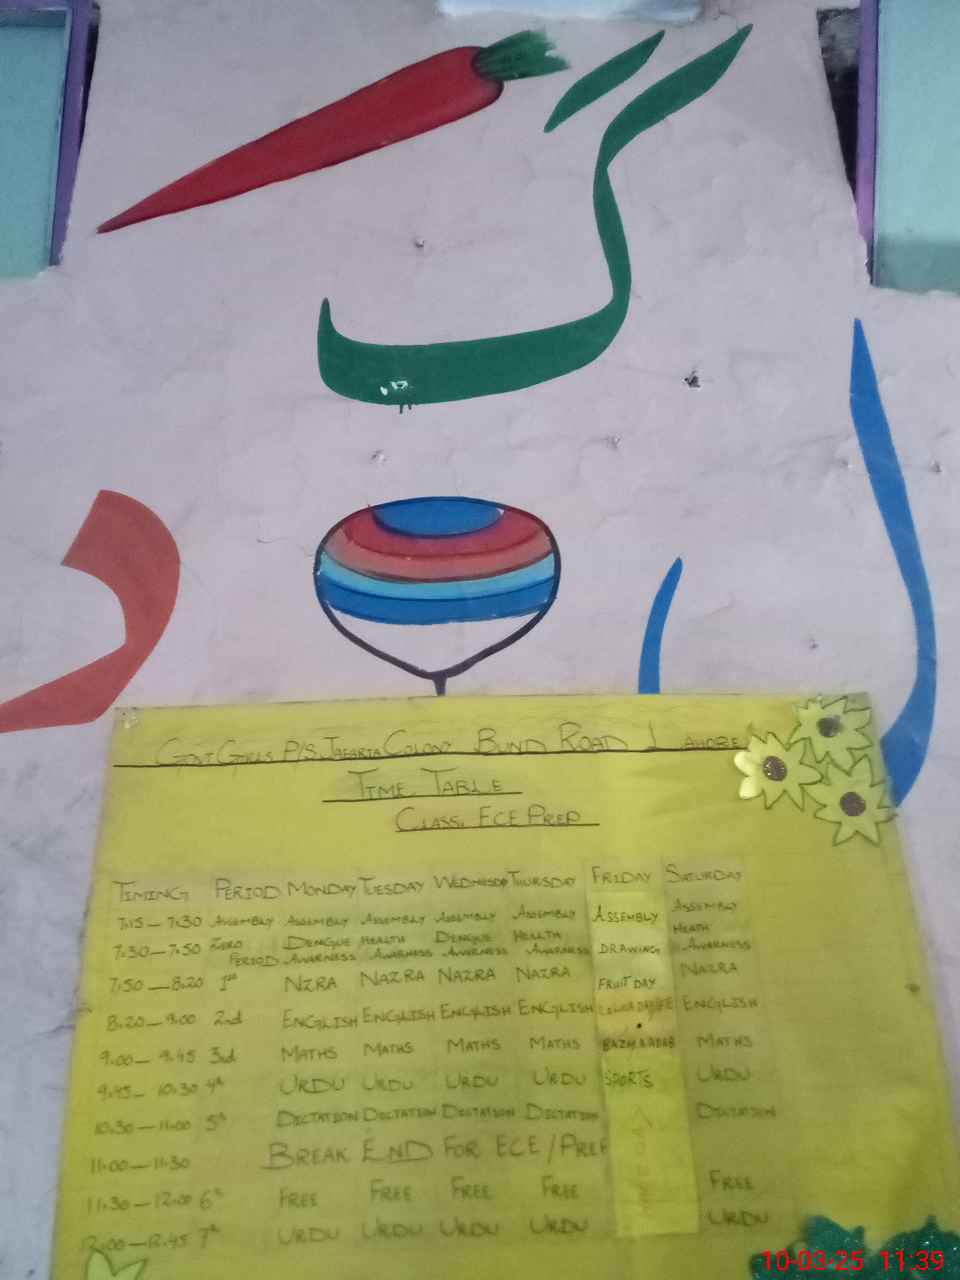 گ
ل
د
GOVT GIRLS P/S. JAFARIA COLONY BUND ROAD LAHORE
TIME TABLE
CLASS. ECE PREP
TIMING PERIOD MONDAY TUESDAY WEDNESDAY THURSDAY FRIDAY SATURDAY
7:15 – 7:30 ASSEMBLY ASSEMBLY ASSEMBLY ASSEMBLY ASSEMBLY ASSEMBLY ASSEMBLY
7:30 – 7:50 ZERO PERIOD DENGUE AWARNESS HEALTH AWARNESS DENGUE AWARNESS HEALTH AWARNESS DRAWING HEATH AWARNESS
7:50 – 8:20 1st NZRA NAZRA NAZRA NAZRA FRUIT DAY NAZRA
8:20 – 9:00 2nd ENGLISH ENGLISH ENGLISH ENGLISH ENGLISH
9:00 – 9:45 3rd MATHS MATHS MATHS MATHS BAZM A ADAB MATHS
9:45 – 10:30 4th URDU URDU URDU URDU SPORTS URDU
10:30 – 11:00 5th DICTATION DICTATION DICTATION DICTATION DICTATION
11:00 – 11:30 BREAK END FOR ECE / PREP
11:30 – 12:00 6th FREE FREE FREE FREE FREE
12:00 – 12:45 7th URDU URDU URDU URDU URDU
10-03-25 11:39